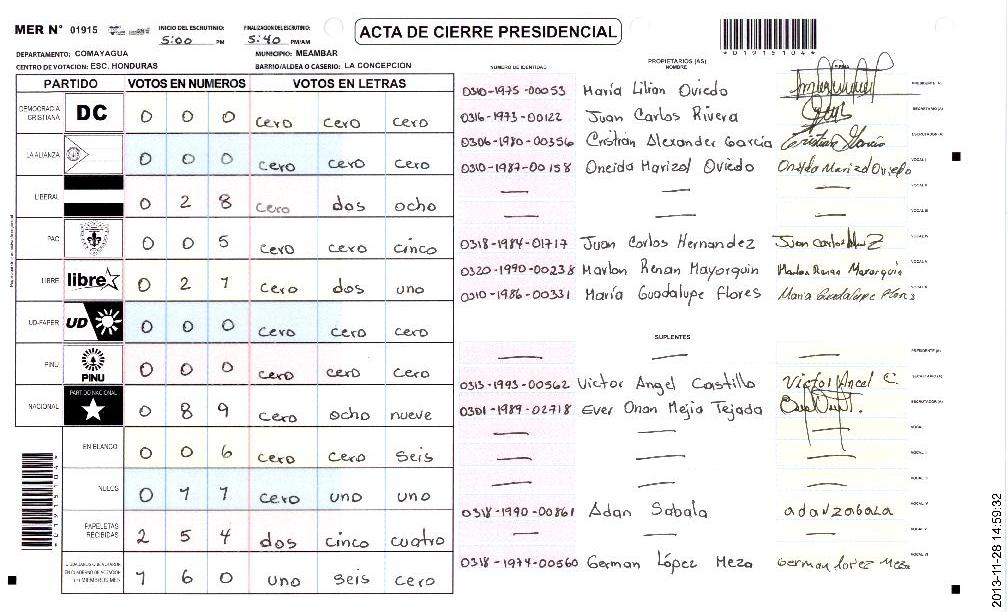 MER N° 01915
INICIO DEL ESCRUTINIO: 5:00 PM
FINALIZACION DEL ESCRUTINIO: 5:40 PM/AM
ACTA DE CIERRE PRESIDENCIAL
*01915104*
DEPARTAMENTO: COMAYAGUA
MUNICIPIO: MEAMBAR
CENTRO DE VOTACION: ESC. HONDURAS
BARRIO/ALDEA O CASERIO: LA CONCEPCION
PARTIDO VOTOS EN NUMEROS VOTOS EN LETRAS
DEMOCRACIA CRISTIANA DC 0 0 0 cero cero cero
LA ALIANZA 0 0 0 cero cero cero
LIBERAL 0 2 8 cero dos ocho
PAC 0 0 5 cero cero cinco
LIBRE libre 0 2 1 cero dos uno
UD-FAPER UD 0 0 0 cero cero cero
PINU PINU 0 0 0 cero cero cero
NACIONAL PARTIDO NACIONAL 0 8 9 cero ocho nueve
EN BLANCO 0 0 6 cero cero seis
NULOS 0 1 1 cero uno uno
PAPELETAS RECIBIDAS 2 5 4 dos cinco cuatro
1 6 0 uno seis cero
NUMERO DE IDENTIDAD
PROPIETARIOS (AS)
NOMBRE
FIRMA
0310-1975-00053 María Lilian Oviedo PRESIDENTE (A)
0316-1973-00122 Juan Carlos Rivera SECRETARIO (A)
0306-1980-00356 Cristian Alexander García Cristian García ESCRUTADOR (A)
0310-1987-00158 Oneida Marizol Oviedo Oneida Marizol Oviedo VOCAL I
VOCAL II
VOCAL III
0318-1984-01717 Juan Carlos Hernandez Juan Carlos VOCAL IV
0320-1990-00238 Marlon Renan Mayorquin Marlon Renan Mayorquin VOCAL V
0310-1986-00331 María Guadalupe Flores Maria Guadalupe Flores VOCAL VI
SUPLENTES
PRESIDENTE (A)
0313-1993-00562 Victor Angel Castillo Victor Angel C. SECRETARIO (A)
0301-1989-02718 Ever Onan Mejia Tejada ESCRUTADOR (A)
VOCAL I
VOCAL II
VOCAL III
0318-1990-00861 Adan Sabala adanzabala VOCAL IV
VOCAL V
0318-1974-00560 German López Meza German lopez Meza VOCAL VI
*01915104*
2013-11-28 14:59:32